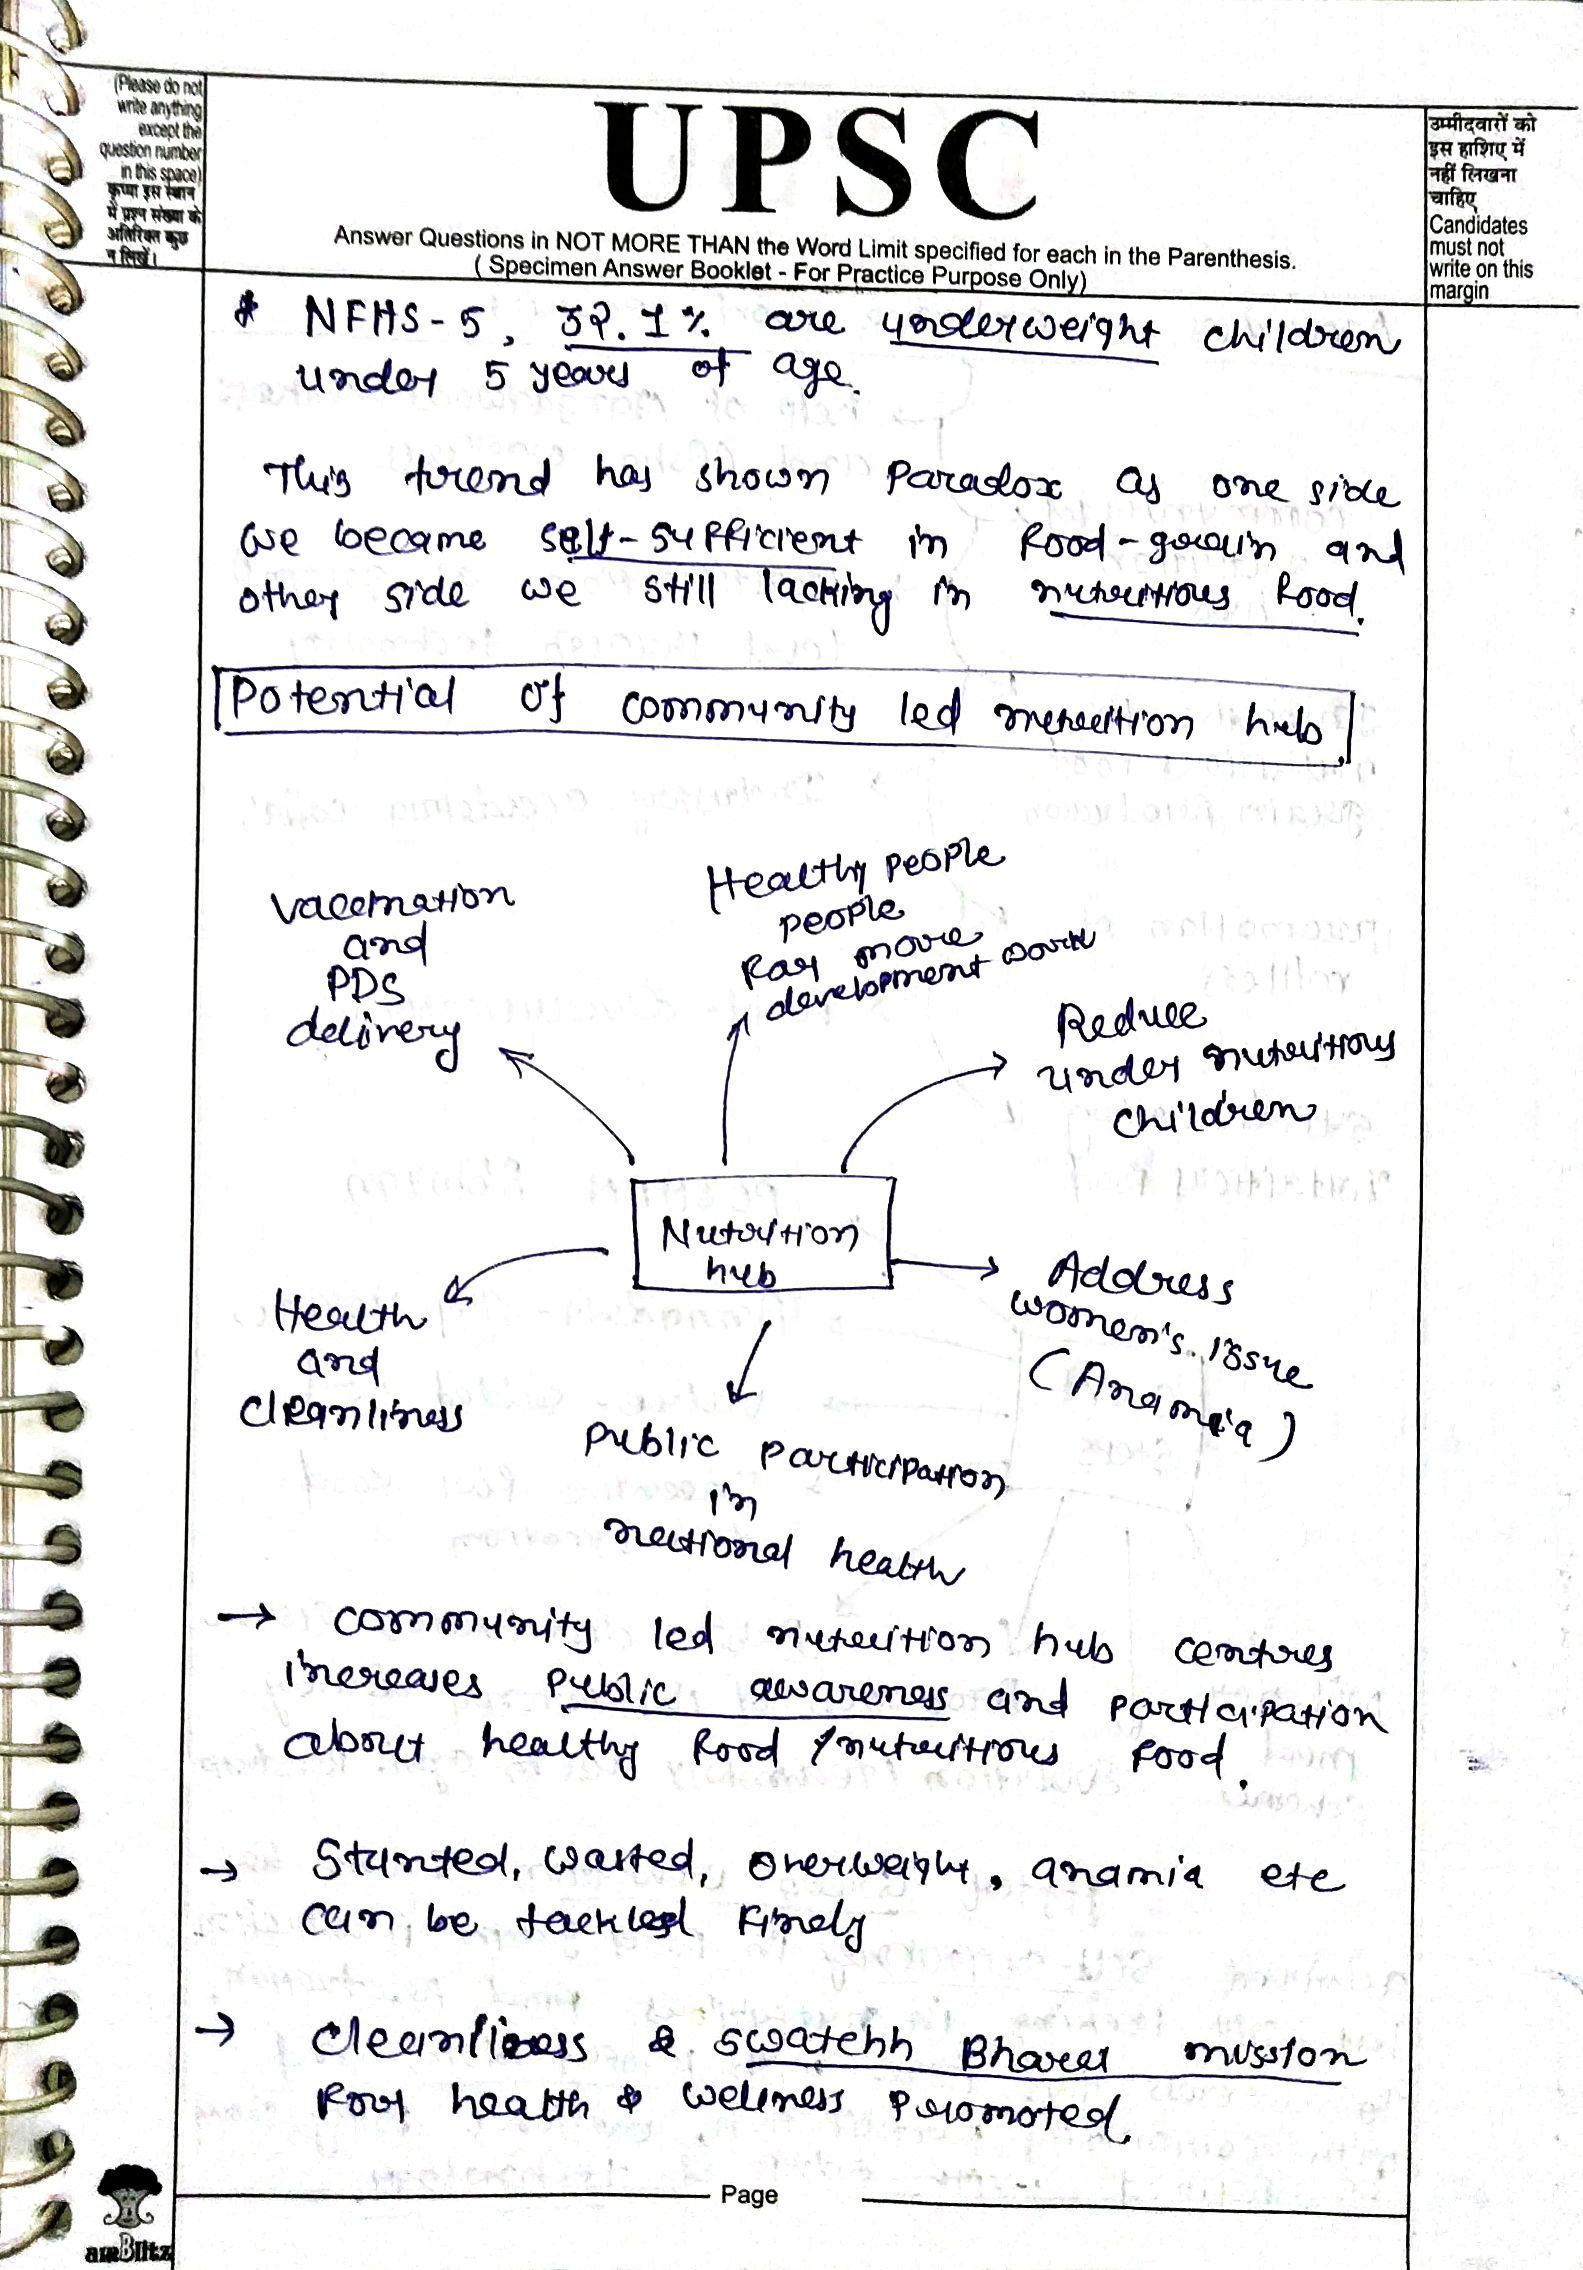 (Please do not
write anything
except the
question number
in this space)
कृप्या इस स्थान
में प्रश्न संख्या के
अतिरिक्त कुछ
न लिखें।
UPSC
Answer Questions in NOT MORE THAN the Word Limit specified for each in the Parenthesis.
( Specimen Answer Booklet - For Practice Purpose Only)
उम्मीदवारों को
इस हाशिए में
नहीं लिखना
चाहिए
Candidates
must not
write on this
margin
* NFHS-5, 32.1% are underweight children
under 5 years of age.
This trend has shown Paradox as one side
we became self-sufficient in food-grain and
other side we still lacking in nutritious food.
Potential of community led nutrition hub.
Vaccination
and
PDS
delivery
Healthy people
people
for more
development work
Reduce
under nutritious
children
Nutrition
hub
Health
and
cleanliness
Address
women's issue
(Anameia)
Public Participation
in
national health
→ community led nutrition hub centres
increases public awareness and participation
about healthy food /nutritious food.
→ Stunted, wasted, overweight, anamia etc
can be tackled finely
→ Cleanliness & swatchh Bharat mission
for health & wellness promoted.
Page
amBlitz